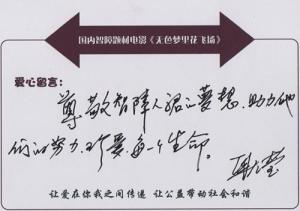 国内智障题材电影《无色梦里花飞扬》
爱心留言：
尊敬智障人群的梦想,助力他
们的努力,珍爱每一个生命。
让爱在你我之间传递 让公益带动社会和谐